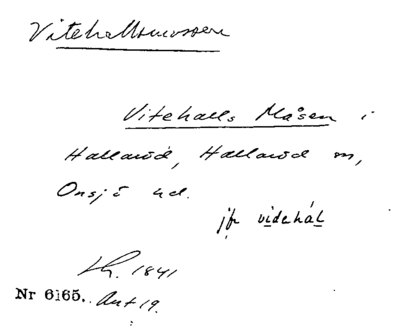 Vitehallsmossen
Vitehalls Måsen i
Hallaröd, Hallaröd sn,
Onsjö hd.
jfr videhál
Lh. 1841
Nr 6165. Akt 19.